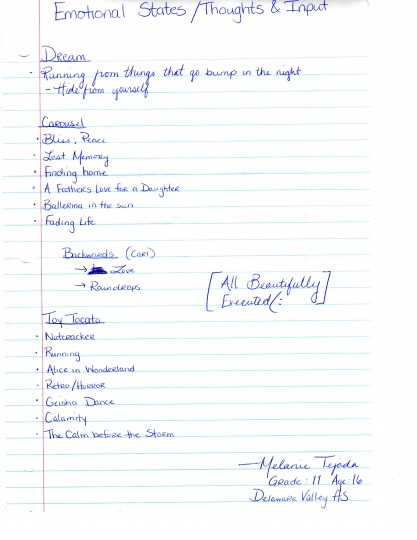 Emotional States / Thoughts & Input
Dream
· Running from things that go bump in the night
- Hide from yourself
Carousel
· Bliss, Peace
· Lost Memory
· Finding home
· A Father's Love for a Daughter
· Ballerina in the sun
· Fading Life
Backwards (Cari)
→ Love
→ Raindrops
[All Beautifully
Executed (:]
Toy Tocata
· Nutcracker
· Running
· Alice in Wonderland
· Retro/Horror
· Geisha Dance
· Calamity
· The Calm before the Storm
—Melanie Tejada
Grade: 11 Age: 16
Delaware Valley HS